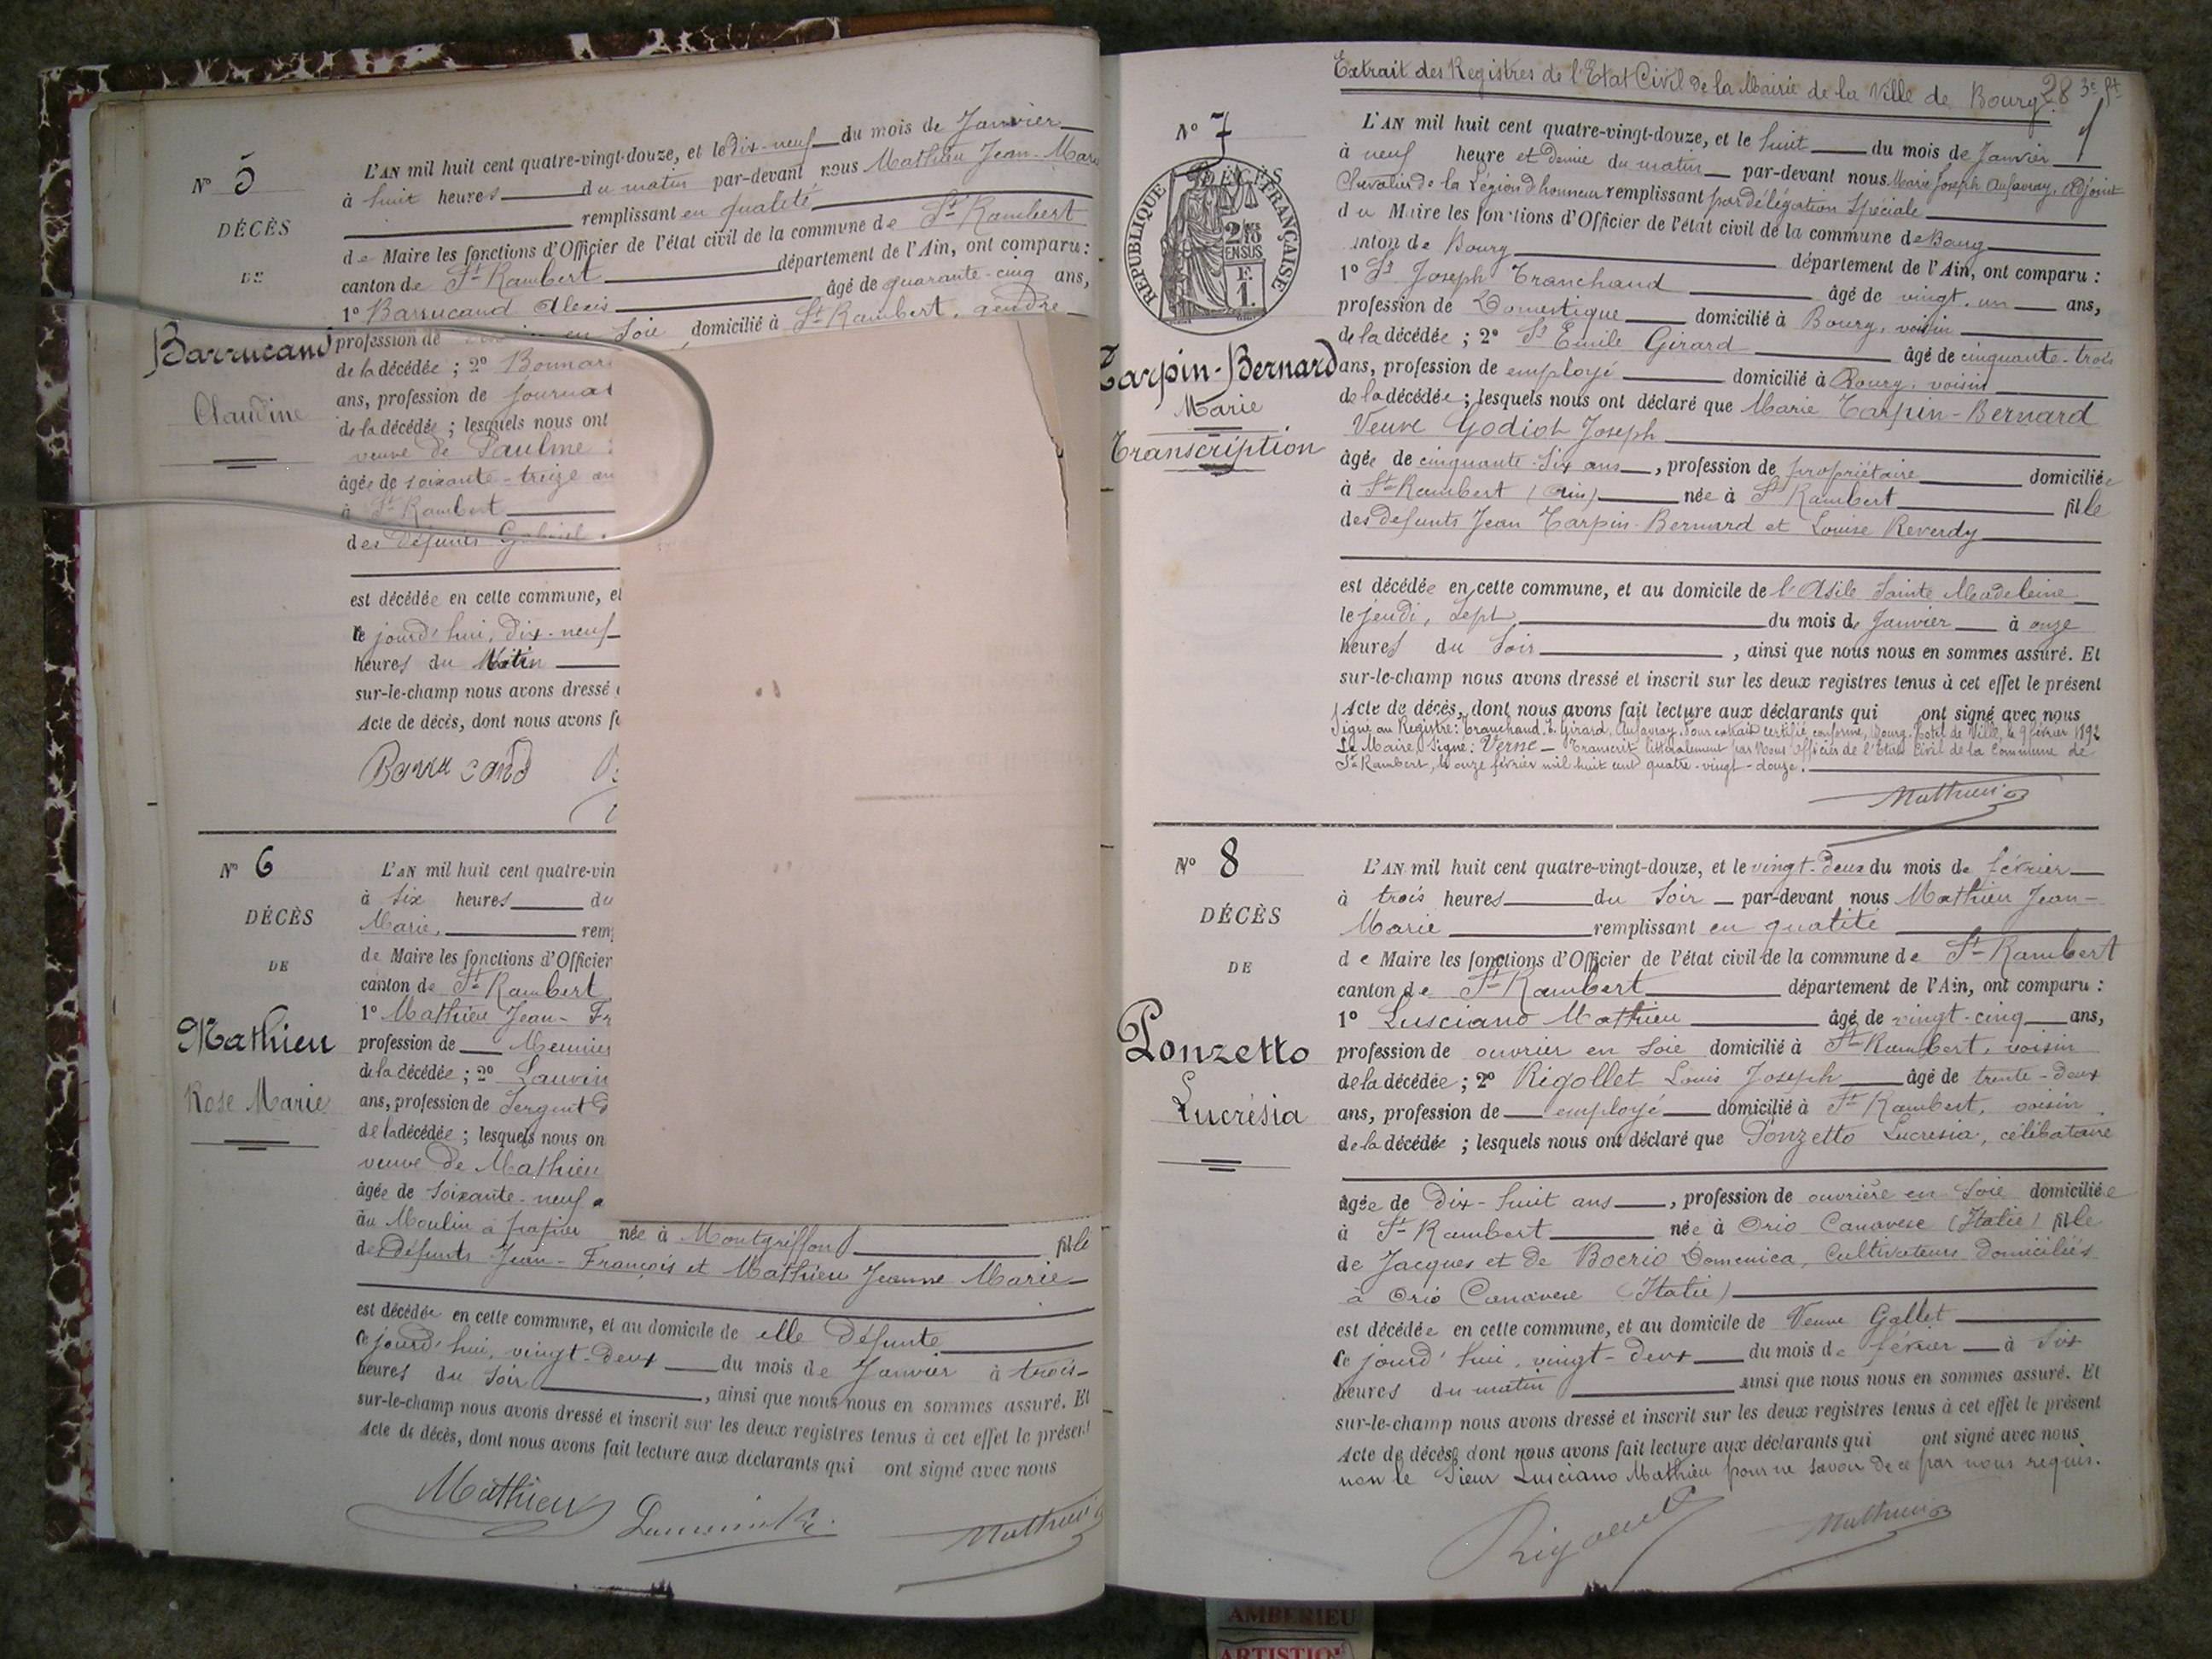 N° 5
DÉCÈS
DE
Barrucand
Claudine
L'AN mil huit cent quatre-vingt-douze, et le dix-neuf du mois de Janvier
à huit heures du matin par-devant nous Mathieu Jean-Marie
remplissant en qualité
de Maire les fonctions d'Officier de l'état civil de la commune de St Rambert
canton de St Rambert département de l'Ain, ont comparu :
1° Barrucand Alexis âgé de quarante-cinq ans,
profession de en soie, domicilié à St Rambert, gendre
de la décédée ; 2°
ans, profession de
de la décédée ; lesquels nous ont
veuve de
âgée de soixante-treize
à St Rambert
des défunts Gabriel
est décédée en cette commune,
le jourd'hui, dix-neuf
heures du Matin
sur-le-champ nous avons dressé
Acte de décès, dont nous avons
Barrucand
N° 6
DÉCÈS
DE
Mathieu
Rose Marie
L'AN mil huit cent quatre-vin
à six heures du
Marie,
de Maire les fonctions d'Officier
canton de St Rambert
1° Mathieu Jean-
profession de Meunier
de la décédée ; 2°
ans, profession de Sergent
de la décédée ; lesquels nous on
veuve de Mathieu
âgée de soixante-neuf
au Moulin à papier née à Montgriffon fille
des défunts Jean-François et Mathieu Jeanne Marie
est décédée en cette commune, et au domicile de elle défunte
ce jourd'hui, vingt-deux du mois de Janvier à trois
heures du soir, ainsi que nous nous en sommes assuré. Et
sur-le-champ nous avons dressé et inscrit sur les deux registres tenus à cet effet le présent
Acte de décès, dont nous avons fait lecture aux déclarants qui ont signé avec nous
Mathieu
Mathieu
Extrait des Registres de l'Etat Civil de la Mairie de la Ville de Bourg. 28 3e ft
N° 7
DÉCÈS
RÉPUBLIQUE FRANÇAISE
Tarpin-Bernard
Marie
Transcription
L'AN mil huit cent quatre-vingt-douze, et le huit du mois de Janvier
à neuf heure et demie du matin par-devant nous Marie Joseph Aufavray, Adjoint
Chevalier de la Légion d'honneur remplissant par délégation spéciale
du Maire les fonctions d'Officier de l'état civil de la commune de Bourg
anton de Bourg département de l'Ain, ont comparu :
1° Sr Joseph Tranchand âgé de vingt-un ans,
profession de Domestique domicilié à Bourg, voisin
de la décédée ; 2° Sr Emile Girard âgé de cinquante-trois
ans, profession de employé domicilié à Bourg, voisin
de la décédée ; lesquels nous ont déclaré que Marie Tarpin-Bernard
Veuve Godiot Joseph
âgée de cinquante-six ans, profession de propriétaire domiciliée
à St-Rambert (Ain) née à St Rambert fille
des defunts Jean Tarpin-Bernard et Louise Reverdy
est décédée en cette commune, et au domicile de l'Asile Sainte Madeleine
le jeudi, sept du mois de Janvier à onze
heures du soir, ainsi que nous nous en sommes assuré. Et
sur-le-champ nous avons dressé et inscrit sur les deux registres tenus à cet effet le présent
Acte de décès, dont nous avons fait lecture aux déclarants qui ont signé avec nous
Signé au Registre : Tranchand. E. Girard, Aufavray. Pour extrait certifié conforme, Bourg. Hotel de Ville, le 9 février 1892
Le Maire, Signé : Verne - Transcrit littéralement par Nous Officier de l'Etat Civil de la Commune de
St Rambert, le onze février mil huit cent quatre-vingt-douze.
Mathieu
N° 8
DÉCÈS
DE
Ponzetto
Lucrésia
L'AN mil huit cent quatre-vingt-douze, et le vingt-deux du mois de février
à trois heures du soir par-devant nous Mathieu Jean-
Marie remplissant en qualité
de Maire les fonctions d'Officier de l'état civil de la commune de St-Rambert
canton de St-Rambert département de l'Ain, ont comparu :
1° Lusciano Mathieu âgé de vingt-cinq ans,
profession de ouvrier en soie domicilié à St-Rambert, voisin
de la décédée ; 2° Rigollet Louis Joseph âgé de trente-deux
ans, profession de employé domicilié à St Rambert, voisin
de la décédée ; lesquels nous ont déclaré que Ponzetto Lucrésia, célibataire
âgée de dix-huit ans, profession de ouvrière en soie domiciliée
à St-Rambert née à Orio Canavese (Italie) fille
de Jacques et de Boerio Domenica, cultivateurs domiciliés
à Orio Canavese (Italie)
est décédée en cette commune, et au domicile de Veuve Gallet
ce jourd'hui, vingt-deux du mois de février à six
heures du matin ainsi que nous nous en sommes assuré. Et
sur-le-champ nous avons dressé et inscrit sur les deux registres tenus à cet effet le présent
Acte de décès, dont nous avons fait lecture aux déclarants qui ont signé avec nous
non le Sieur Lusciano Mathieu pour ne savoir de ce par nous requis.
Mathieu
AMBERIEU